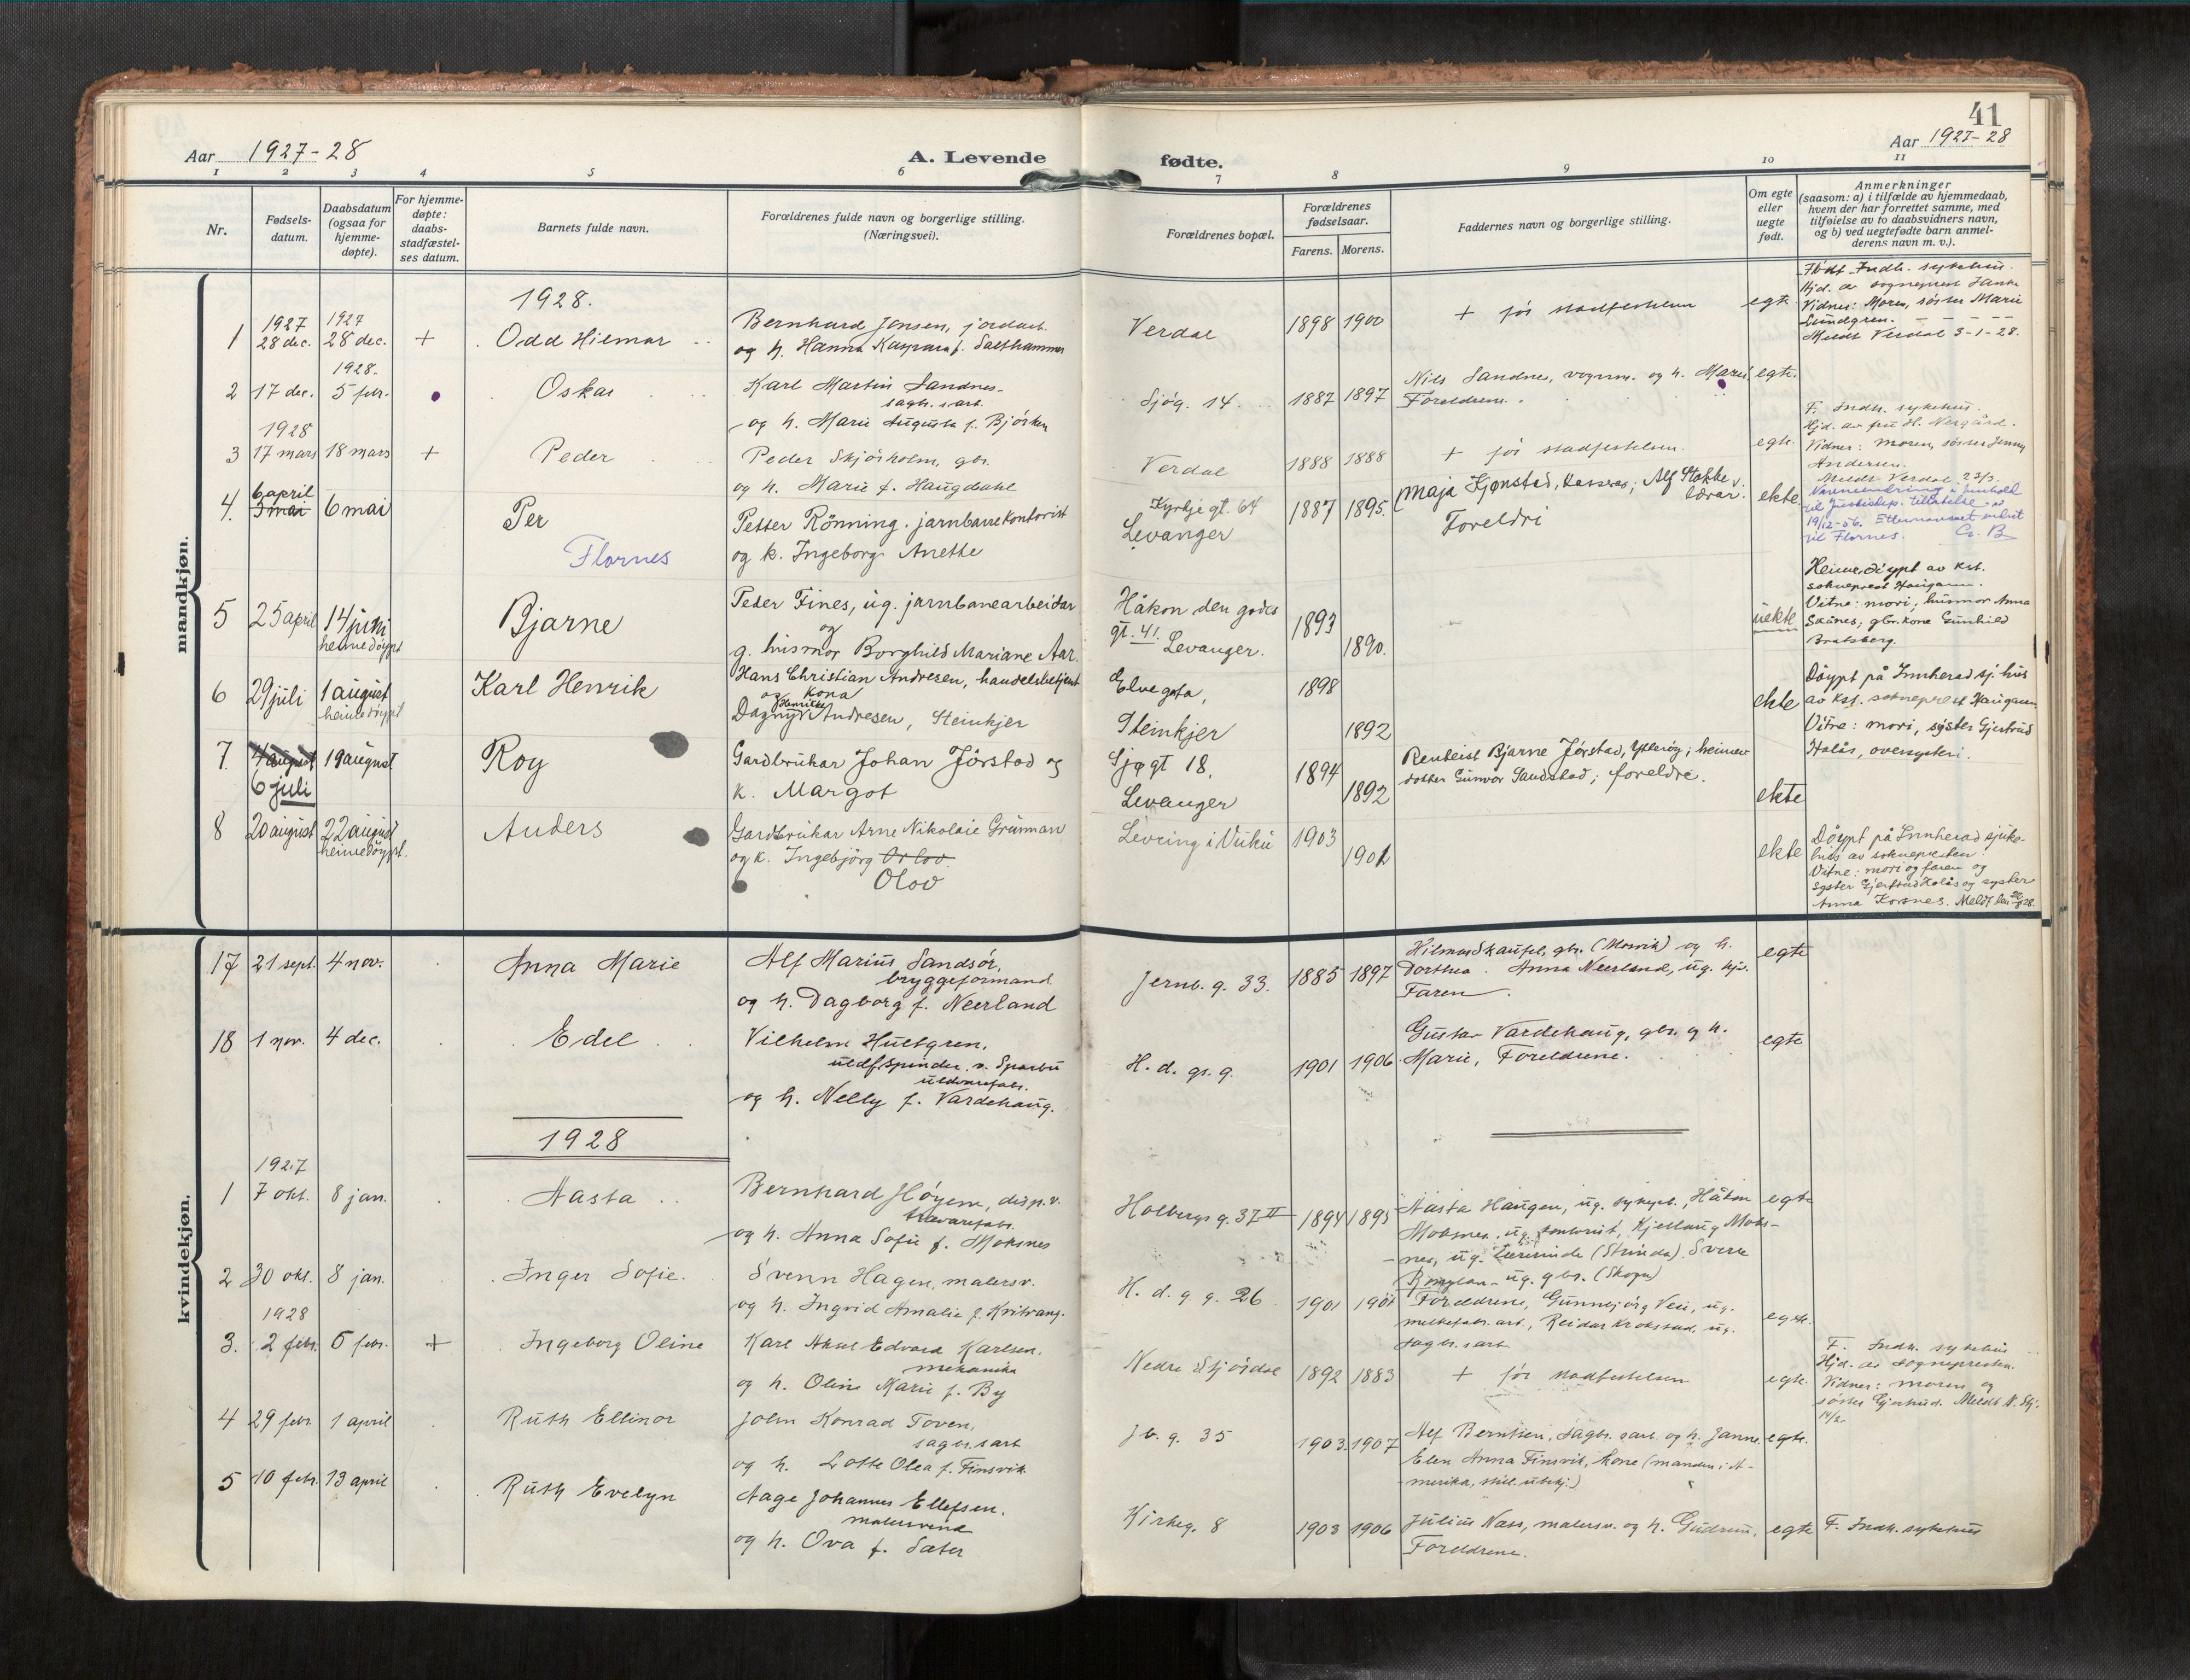 41
Aar 1927-28
A. Levende fødte.
Aar 1927-28
1 2 3 4 5 6 7 8 9 10 11
Nr.
Fødsels-
datum.
Daabsdatum
(ogsaa for
hjemme-
døpte).
For hjemme-
døpte:
daabs-
stadfæstel-
ses datum.
Barnets fulde navn.
Forældrenes fulde navn og borgerlige stilling.
(Næringsvei).
Forældrenes bopæl.
Forældrenes
fødselsaar.
Farens. Morens.
Faddernes navn og borgerlige stilling.
Om egte
eller
uegte
født.
Anmerkninger
(saasom: a) i tilfælde av hjemmedaab,
hvem der har forrettet samme, med
tilføielse av to daabsvidners navn,
og b) ved uegtefødte barn anmel-
derens navn m. v.).
mandkjøn.
1928.
1
1927
28 dec.
1927
28 dec.
+
Odd Hilmar
Bernhard Jensen, jordarb.
og h. Hanna Kaspara f. Salthammer
Verdal
1898 1900
+ før stadfestelsen
egte
Født Indh. sykehus.
Hjd. av sogneprest Hanke
Vidner: Moren, søster Marie
Lundgren.
Meldt Verdal 3-1-28.
2
17 dec.
1928.
5 febr.
Oskar
Karl Martin Sandnes
sagbr.sarb.
og h. Marie Augusta f. Bjørken
Sjøg. 14.
1887 1897
Nils Sandnes, vognm. og h. Marie
Foreldrene.
egte.
3
1928
17 mars
18 mars
+
Peder
Peder Skjørholm, gbr.
og h. Marie f. Haugdahl
Verdal
1888 1888
+ før stadfestelsen.
egte.
F. Indh. sykehus.
Hjd. av fru H. Nergård.
Vidner: moren, søster Jenny
Andersen.
Meldt Verdal 23/3.
4.
6 april
3 mai
6 mai
Per
Flornes
Petter Rönning, jarnbanekontorist
og k. Ingeborg Anette
Kyrkjegt. 64
Levanger
1887 1895.
Maja Kjønstad, kasserer; Alf Stokke
lærar.
Foreldri
ekte
Navneendring i henhold
til Justisdep. tillatelse av
19/12-56. Etternavnet endret
til Flornes. G. B
5
25 april
14 juni
heimedøypt
Bjarne
Peder Fines, ug. jarnbanearbeidar
og
g. husmor Borghild Mariane Aar.
Håkon den godes
gt. 41. Levanger.
1893
1890.
uekte
Heimedøypt av kst.
sokneprest Haugann.
Vitne: mori; husmor Anna
Skånes; gbr. kone Gunhild
Bratsberg.
6
29 juli
1 august
heimedøypt
Karl Henrik
Hans Christian Andresen, handelsbetjent
og kona
Dagny Henrikke Andresen, Steinkjer
Elvegata,
Steinkjer
1898
1892
ekte
Döypt på Innherad sj. hus
av kst. sokneprest Haugann.
Vitne: mori, syster Gjertrud
Holås, oversysteri.
7
4 august
6 juli
19 august
Roy
Gardbrukar Johan Jørstad og
k. Margot
Sjøgt 18,
Levanger
1894
1892
Renteist Bjarne Jørstad, Ytterøy; heimev.
dotter Gunvor Sandstad; foreldre.
ekte
8
20 august
22 august
heimedøypt.
Anders
Gardbrukar Arne Nikolaie Grunnan
og k. Ingebjörg Orlov
Olov
Levring i Vuku
1903
1901
ekte
Döypt på Innherad sjuke-
hus av soknepresten
Vitne: mori og faren og
syster Gjertrud Holås og syster
Anna Korsnes. Meldt den 28/8 28.
kvindekjøn.
17
21 sept.
4 nov.
Anna Marie
Alf Marius Sandsör,
bryggeformand
og h. Dagborg f. Neerland
Jernb. g. 33.
1885 1897
Hilmar Skaufel, gbr. (Mosvik) og h.
Dorthea. Anna Neerland, ug. hjv.
Faren.
egte
18
1 nov.
4 dec.
Edel
Vilhelm Hultgren,
uldf.spinder. v. Sparbu
uldvarefabr.
og h. Nelly f. Vardehaug.
H. d. gs. g.
1901 1906
Gustav Vardehaug, gbr. og h.
Marie, Foreldrene.
egte
1928
1
1927
7 okt.
8 jan.
Aasta
Bernhard Høyem, disp. v.
trevarefabr.
og h. Anna Sofie f. Moksnes
Holbergs g. 37 II
1894 1895
Aasta Haugen, ug. sykepl., Håkon
Moksnes, ug. kontorist, Kjellaug Moks-
nes, ug. lærerinde (Strinda). Sverre
ug. gbr. (Skogn)
egte
2
30 okt.
8 jan.
Inger Sofie.
Svenn Hagen, malersv.
og h. Ingrid Amalie f. Kvitvang.
H. d. g. g. 26
1901 1901
Foreldrene, Gunnbjörg Veie, ug.
melkefabr. arb., Reidar Krokstad, ug.
sagbr.sarb
egte.
3.
1928
2 febr.
6 febr.
+
Ingeborg Oline
Karl Aksel Edvard Karlsen,
mekaniker
og h. Oline Marie f. By
Nedre Stjørdal
1892 1883
+ før stadfestelsen
egte.
F. Indh. sykehus
Hjd. av sognepresten.
Vidner: moren og
søster Gjertrud. Meldt N. Stj.
14/2.
4
29 febr
1 april
Ruth Ellinor
John Konrad Toven,
sagbr.sarb
og h. Lotte Olea f. Finsvik
Jb. g. 35
1903. 1907
Alf Berntsen, sagbr.sarb. og h. Janna
Elen Anna Finsvik, kone (manden i A-
merika, stil. ubekj.)
egte.
5
10 febr.
13 april
Ruth Evelyn
Aage Johannes Ellefsen,
malersvend
og h. Ova f. Sæter
Kirkeg. 8
1903 1906
Julius Næss, malersv. og h. Gudrun,
Foreldrene.
egte
F. Indh. sykehus